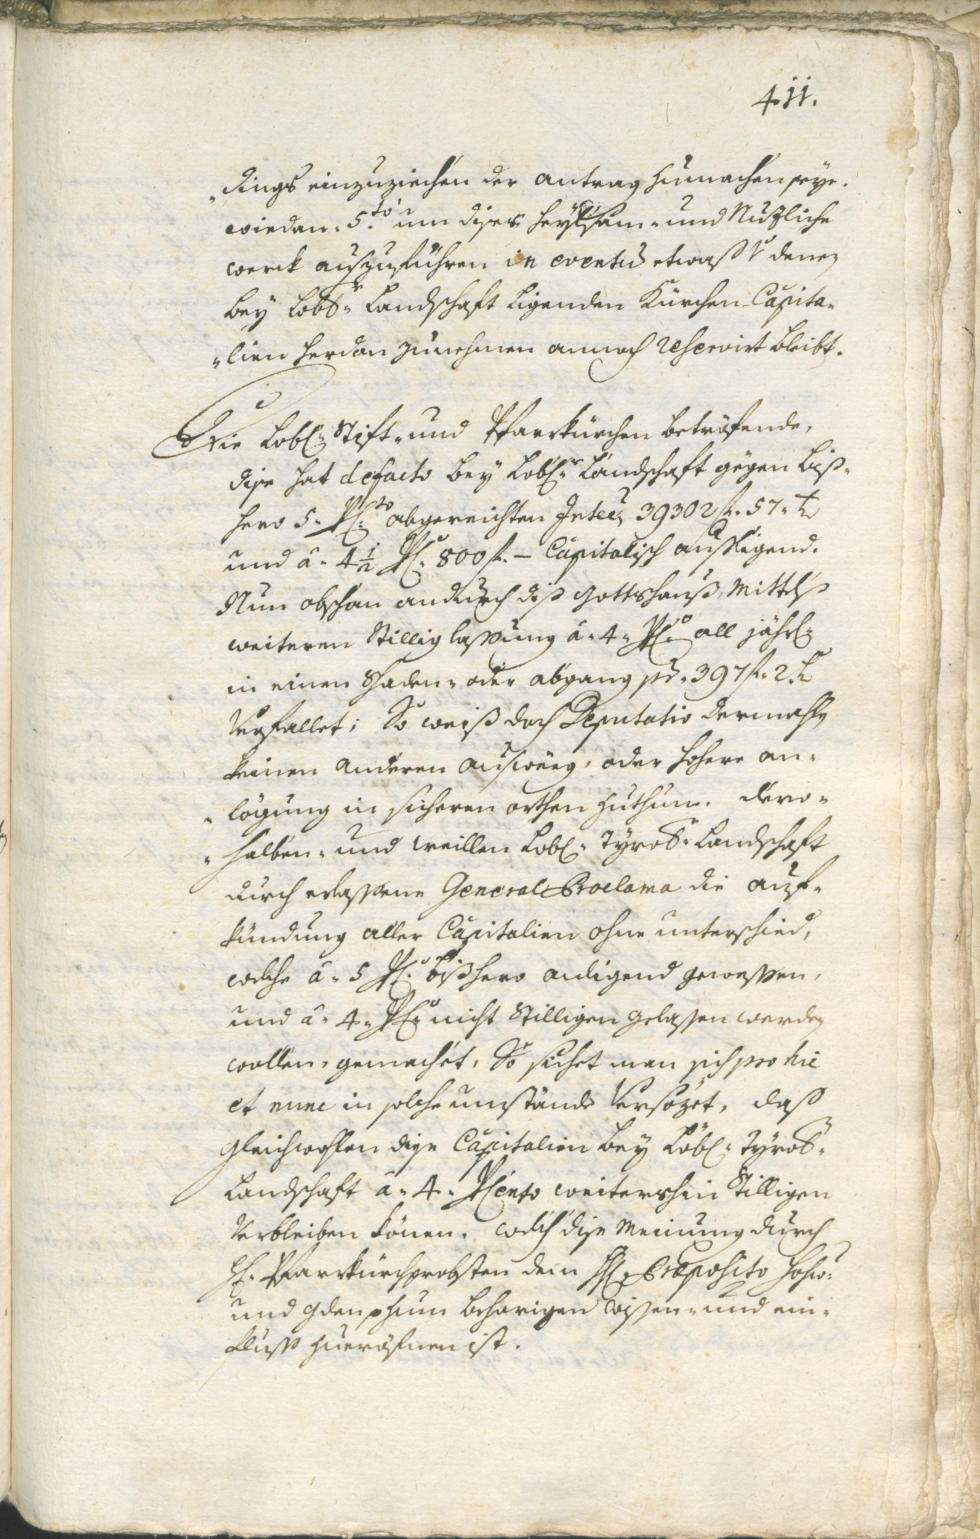 411.
„dings einzuziechen der antrag zumachen seye.
wiedan. 5.to um dises heylsam- und Nuzliche
werck auszuführen in eventu etwaß denen
bey Lobs. Landschaft ligenden Kürchen-Capita-
„lien herdan zunehmen annoch reserviert bleibt.
Die Lobl: Stift- und Pfarrkürchen betröfende,
dise hat de facto bey Lobl:r Landschaft gegen biß-
hero 5. PC:to abgereichten Interes 39302 f. 57. x
und â. 4 1/2 PC. 800 f. – Capitalisch aufligend.
Nun obschon andurch diß Gottshauß, Mittelß
weiteren StilligLassung â. 4. PC:o all jährl:
in einen Schaden- oder abgang pr. 397 f. 2. x
Verfallet; So weiß doch Deputatio dermahlen
keinen anderen ausweeg, oder hohere an-
„lögung in sicheren orthen zuthun. dero-
„halben- und weillen Lobl: Tyrols. Landschaft
durch erlassene General-Proclama die auf-
kündung aller Capitalien ohne unterschied,
welche â. 5 PC:o bißhero anligend gewessen,
und â. 4. PC:o nicht Stilligen gelassen werden
wollen, gemachet, So sichet man sich pro hic
et nunc in solche umstände Versözet, daß
gleichwohlen dise Capitalien bey Löbl: Tyrols.
Landschaft â. 4. PCento weitershin Stilligen
Verbleiben könen. welch dise Meinung durch
H: Pfarrkürchprobsten dem H: Præposito hoch-
und zum behorigen wissen- und ein-
fluß zueröfnen ist.